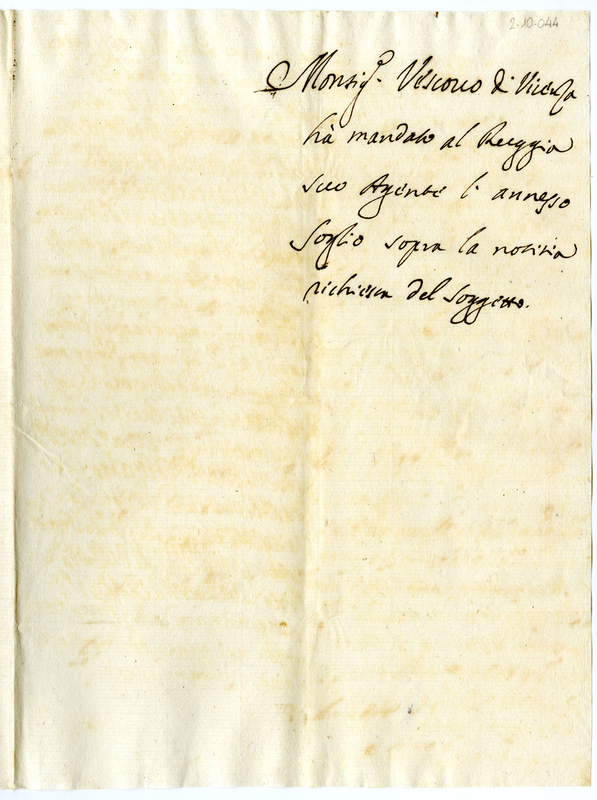 2-10-044
Monsig.r Vescovo di Vicenza
hà mandato al Reggia
suo Agente l' annesso
foglio sopra la notitia
richiesta del soggetto.